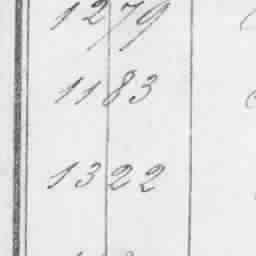 1279
1183
1322